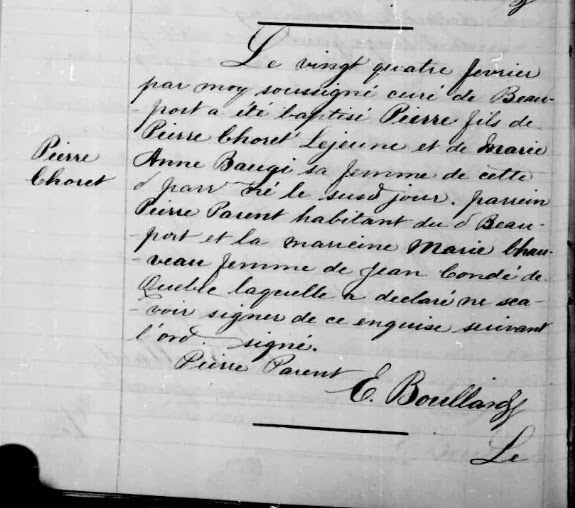 Le vingt quatre fevrier
par moy soussigné curé de Beau-
-port a été baptisé Pierre fils de
Pierre Choret Lejeune et de Marie
Anne Baugi sa femme de cette
d parr né le susd jour. parrein
Pierre Parent habitant du d Beau-
-port et la marreine Marie Chau-
-veau femme de Jean Condé de
Quebec laquelle a declaré ne sca-
-voir signer de ce enquise suivant
l'ord. signé.
Pierre Parent
E. Boullard
Le
Pierre
Choret